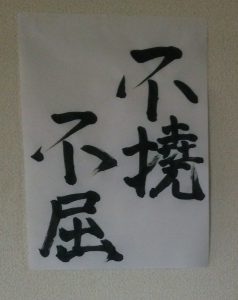 不撓
不屈